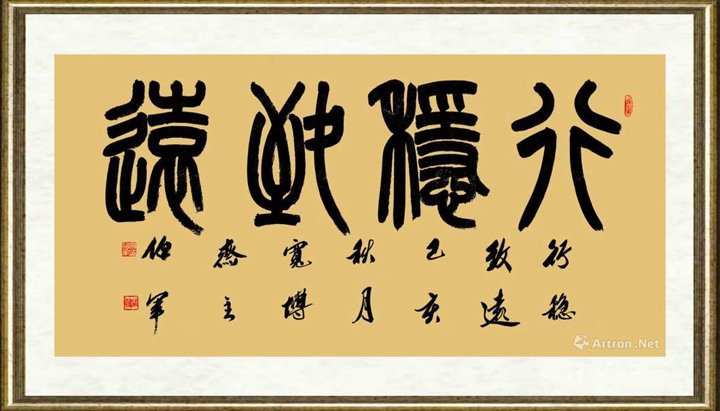 行穩致遠
行穩
致遠
己亥
秋月
寬博
齋主
伯軍
Artron.Net